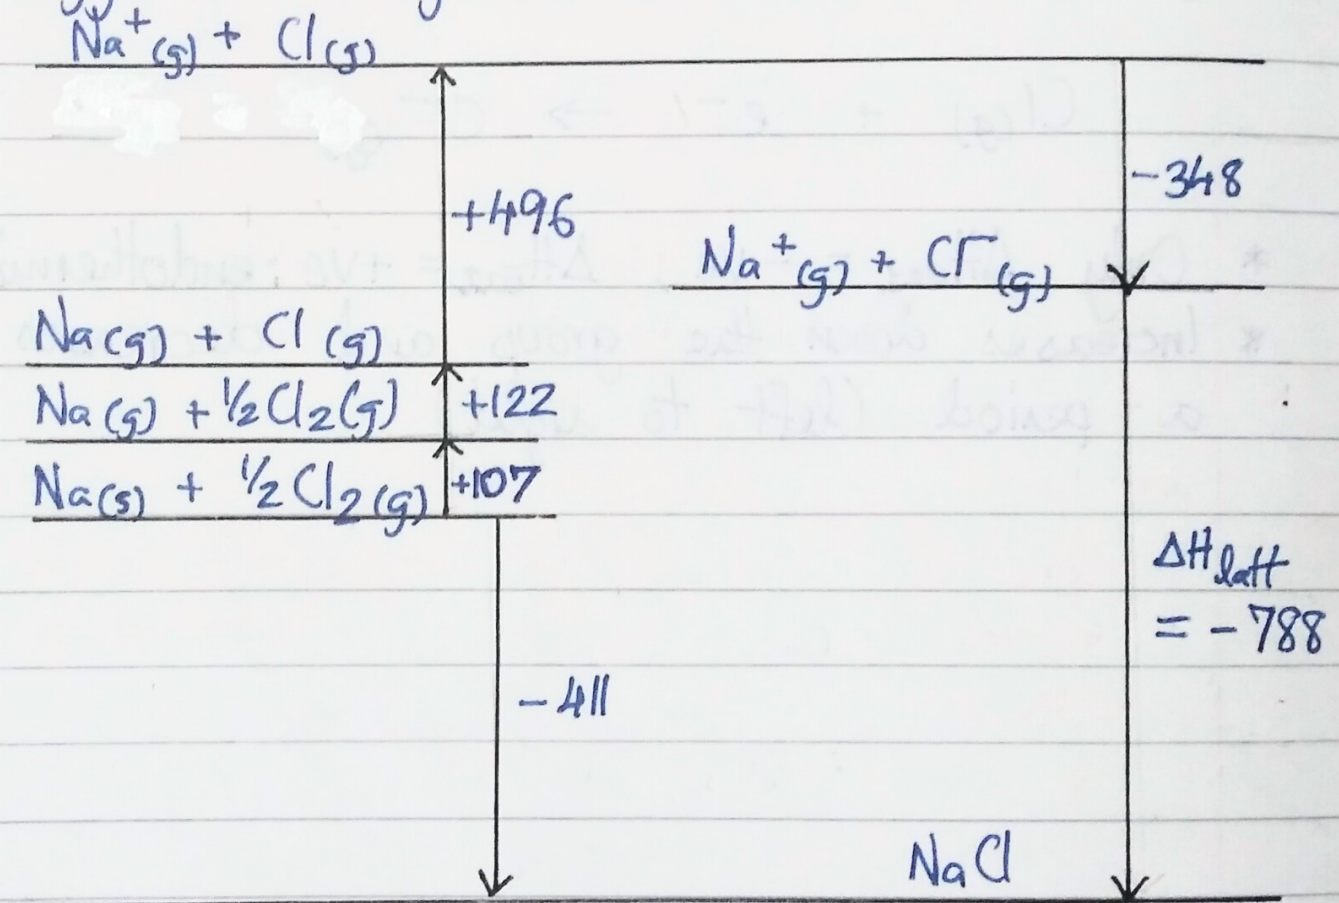 Na⁺(g) + Cl(g)
-348
+496
Na⁺(g) + Cl⁻(g)
Na(g) + Cl(g)
Na(g) + ½Cl₂(g) +122
Na(s) + ½Cl₂(g) +107
ΔHlatt
= -788
-411
NaCl